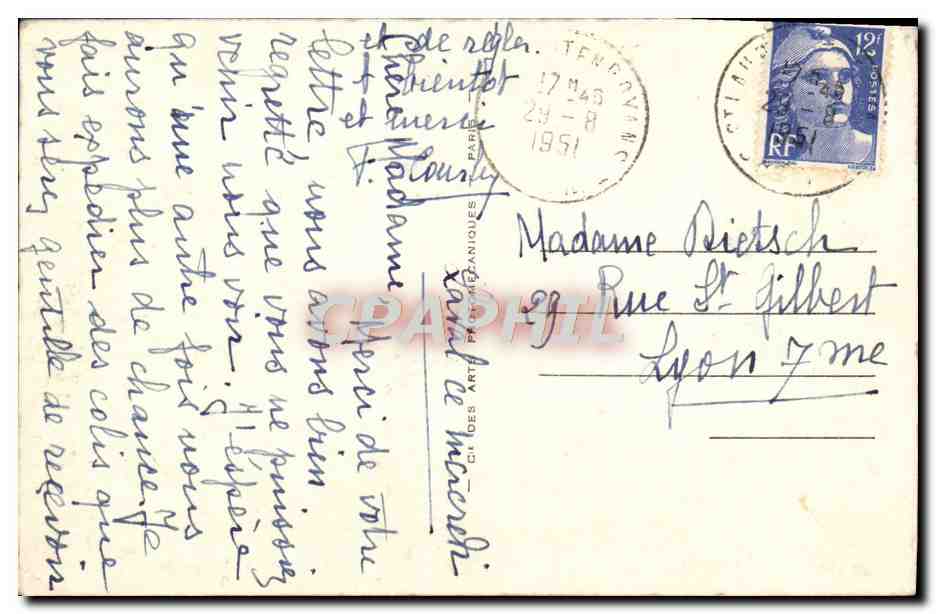 Xamal ce Mercredi
Chère Madame Merci de votre
lettre, nous avons bien
regretté que vous ne puissiez
venir nous voir. J'espère
qu'une autre fois nous
aurons plus de chance. Je
fais expedier des colis que
vous serez gentille de recevoir
et de régler.
A bientot
et merci
— Cie DES ARTS PHOTOMÉCANIQUES — PARIS —
17 H 45
29 - 8
1951
17 H 45
1951
12F
POSTES
RF
Madame Rietsch
29 Rue St Gilbert
Lyon 7me
CPAPHIL